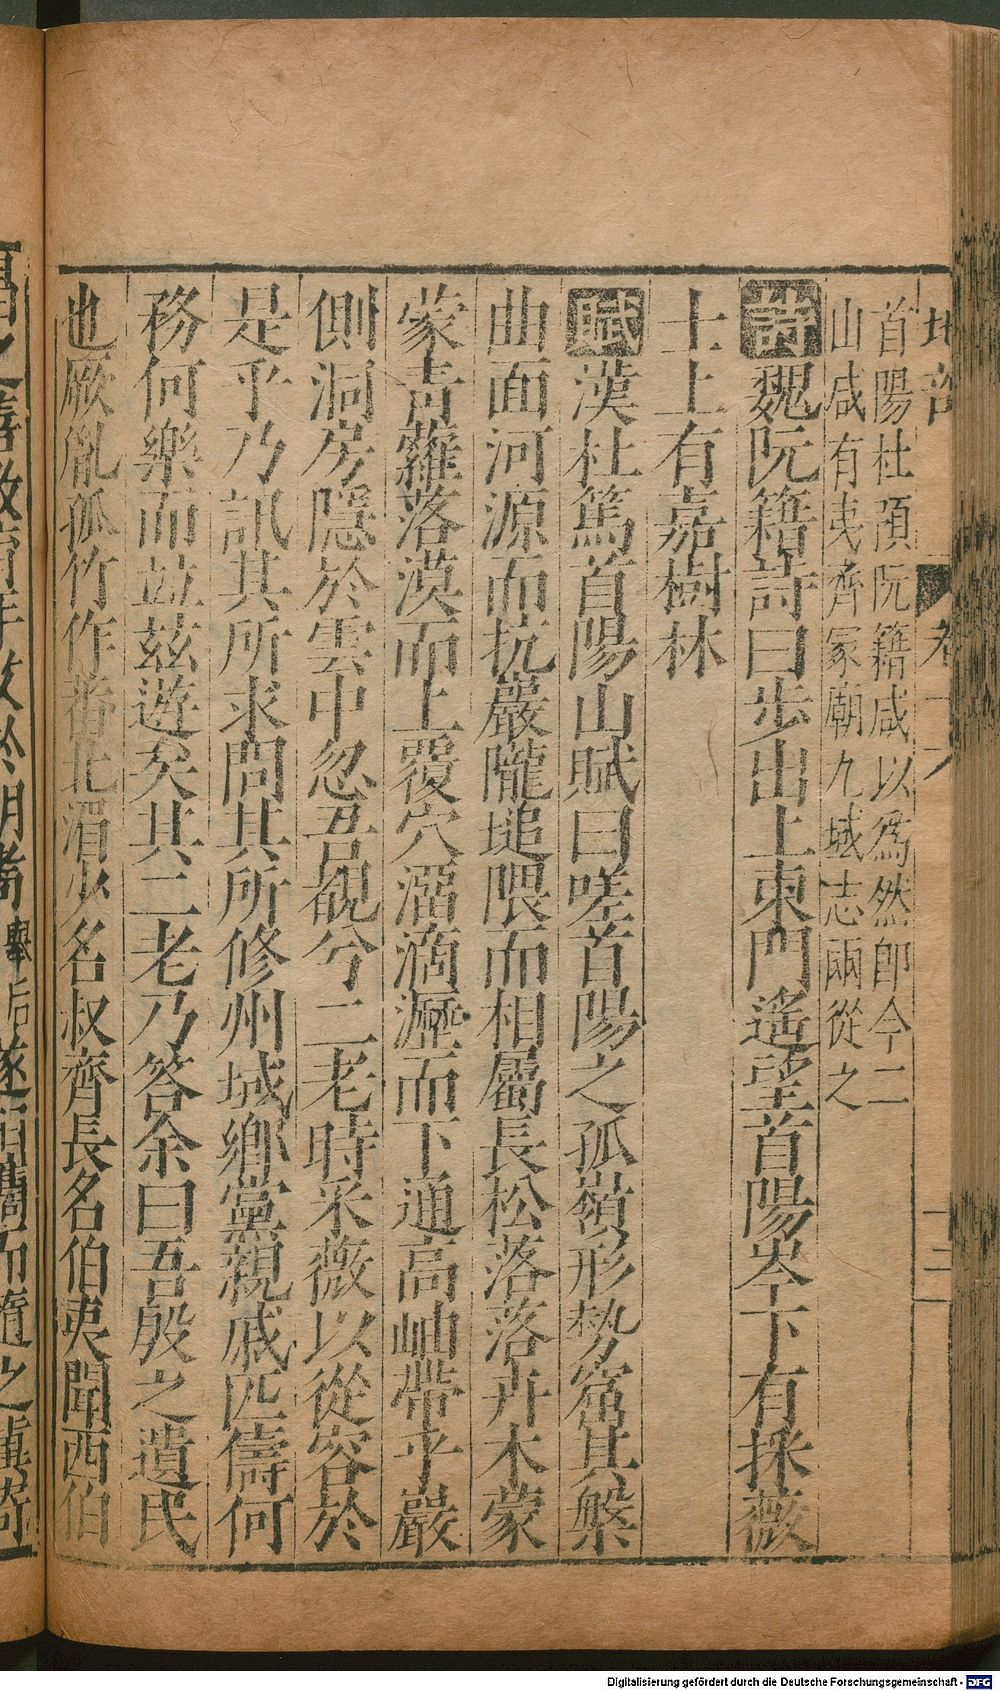 地部 卷一 十三
首陽杜預阮籍咸以爲然即今二
山咸有夷齊冢廟九域志兩從之
詩魏阮籍詩曰步出上東門遙望首陽岑下有採薇
士上有嘉樹林
賦漢杜篤首陽山賦曰嗟首陽之孤嶺形勢窟其槃
曲面河源而抗巖隴塠隈而相屬長松落落卉木蒙
蒙青蘿落漠而上覆穴溜滴瀝而下通高岫帶乎巖
側洞房隱於雲中忽吾覩兮二老時采薇以從容於
是乎乃訊其所求問其所修州域鄉黨親戚匹儔何
務何樂而並茲遊矣其二老乃答余曰吾殷之遺民
也厥胤孤竹作蕃北湄少名叔齊長名伯夷聞西伯
Digitalisierung gefördert durch die Deutsche Forschungsgemeinschaft - DFG